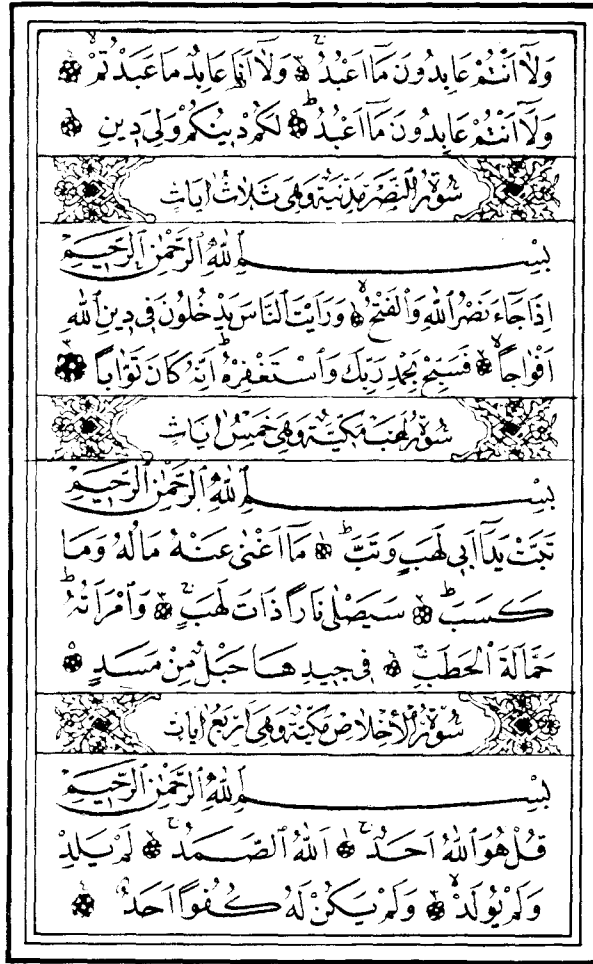 وَلَآ اَنْتُمْ عَابِدُونَ مَآ اَعْبُدُ ۞ وَلَآ اَنَا۬ عَابِدٌ مَا عَبَدْتُمْ ۞
وَلَآ اَنْتُمْ عَابِدُونَ مَآ اَعْبُدُ ۞ لَكُمْ دٖينُكُمْ وَلِيَ دٖينِ ۞
سُورَةُ النَّصْرِ مَدَنِيَّةٌ وَهِيَ ثَلَاثُ اٰيَاتٍ
بِسْمِ اللّٰهِ الرَّحْمٰنِ الرَّحٖيمِ
اِذَا جَآءَ نَصْرُ اللّٰهِ وَالْفَتْحُ ۞ وَرَاَيْتَ النَّاسَ يَدْخُلُونَ فٖي دٖينِ اللّٰهِ
اَفْوَاجًا ۞ فَسَبِّحْ بِحَمْدِ رَبِّكَ وَاسْتَغْفِرْهُ اِنَّهُ كَانَ تَوَّابًا ۞
سُورَةُ لَهَبْ مَكِّيَّةٌ وَهِيَ خَمْسُ اٰيَاتٍ
بِسْمِ اللّٰهِ الرَّحْمٰنِ الرَّحٖيمِ
تَبَّتْ يَدَآ اَبٖي لَهَبٍ وَتَبَّ ۞ مَآ اَغْنٰى عَنْهُ مَالُهُ وَمَا
كَسَبَ ۞ سَيَصْلٰى نَارًا ذَاتَ لَهَبٍ ۞ وَامْرَاَتُهُ
حَمَّالَةَ الْحَطَبِ ۞ فٖي جٖيدِهَا حَبْلٌ مِنْ مَسَدٍ ۞
سُورَةُ الْاِخْلَاصِ مَكِّيَّةٌ وَهِيَ اَرْبَعُ اٰيَاتٍ
بِسْمِ اللّٰهِ الرَّحْمٰنِ الرَّحٖيمِ
قُلْ هُوَ اللّٰهُ اَحَدٌ ۞ اَللّٰهُ الصَّمَدُ ۞ لَمْ يَلِدْ
وَلَمْ يُولَدْ ۞ وَلَمْ يَكُنْ لَهُ كُفُوًا اَحَدٌ ۞